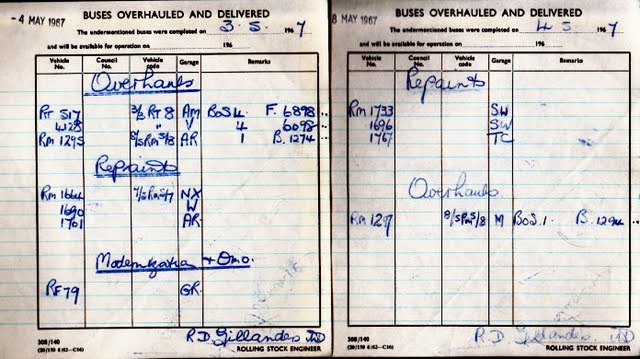 - 4 MAY 1967
BUSES OVERHAULED AND DELIVERED
The undermentioned buses were completed on 3.5. 1967
and will be available for operation on 196
Vehicle No. Council No. Vehicle code Garage Remarks
Overhauls
RT 517 3/2 RT 8 AM BoS 4 F. 6898
4128 " V 4 6098
RM 1295 5/5 RM 5/8 AR 1 B. 1274
Repaints
RM 1644 NX
1690 W
1701 AR
Modernization + Omo.
RF 79 GR
R.D. Gillanders
308/140
ROLLING STOCK ENGINEER
8 MAY 1967
BUSES OVERHAULED AND DELIVERED
The undermentioned buses were completed on 4.5. 1967
and will be available for operation on 196
Vehicle No. Council No. Vehicle code Garage Remarks
Repaints
RM 1733 SW
1696 SW
1767 TC
Overhauls
RM M BOS. 1. B. 1294
R.D. Gillanders
308/140
ROLLING STOCK ENGINEER